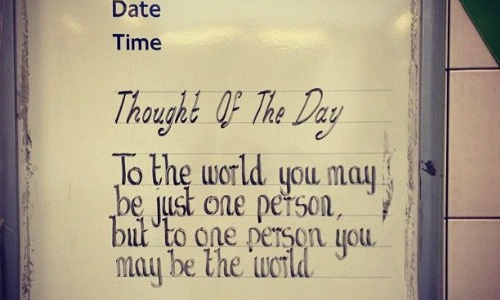 Date
Time
Thought Of The Day
To the world you may
be just one person,
but to one person you
may be the world